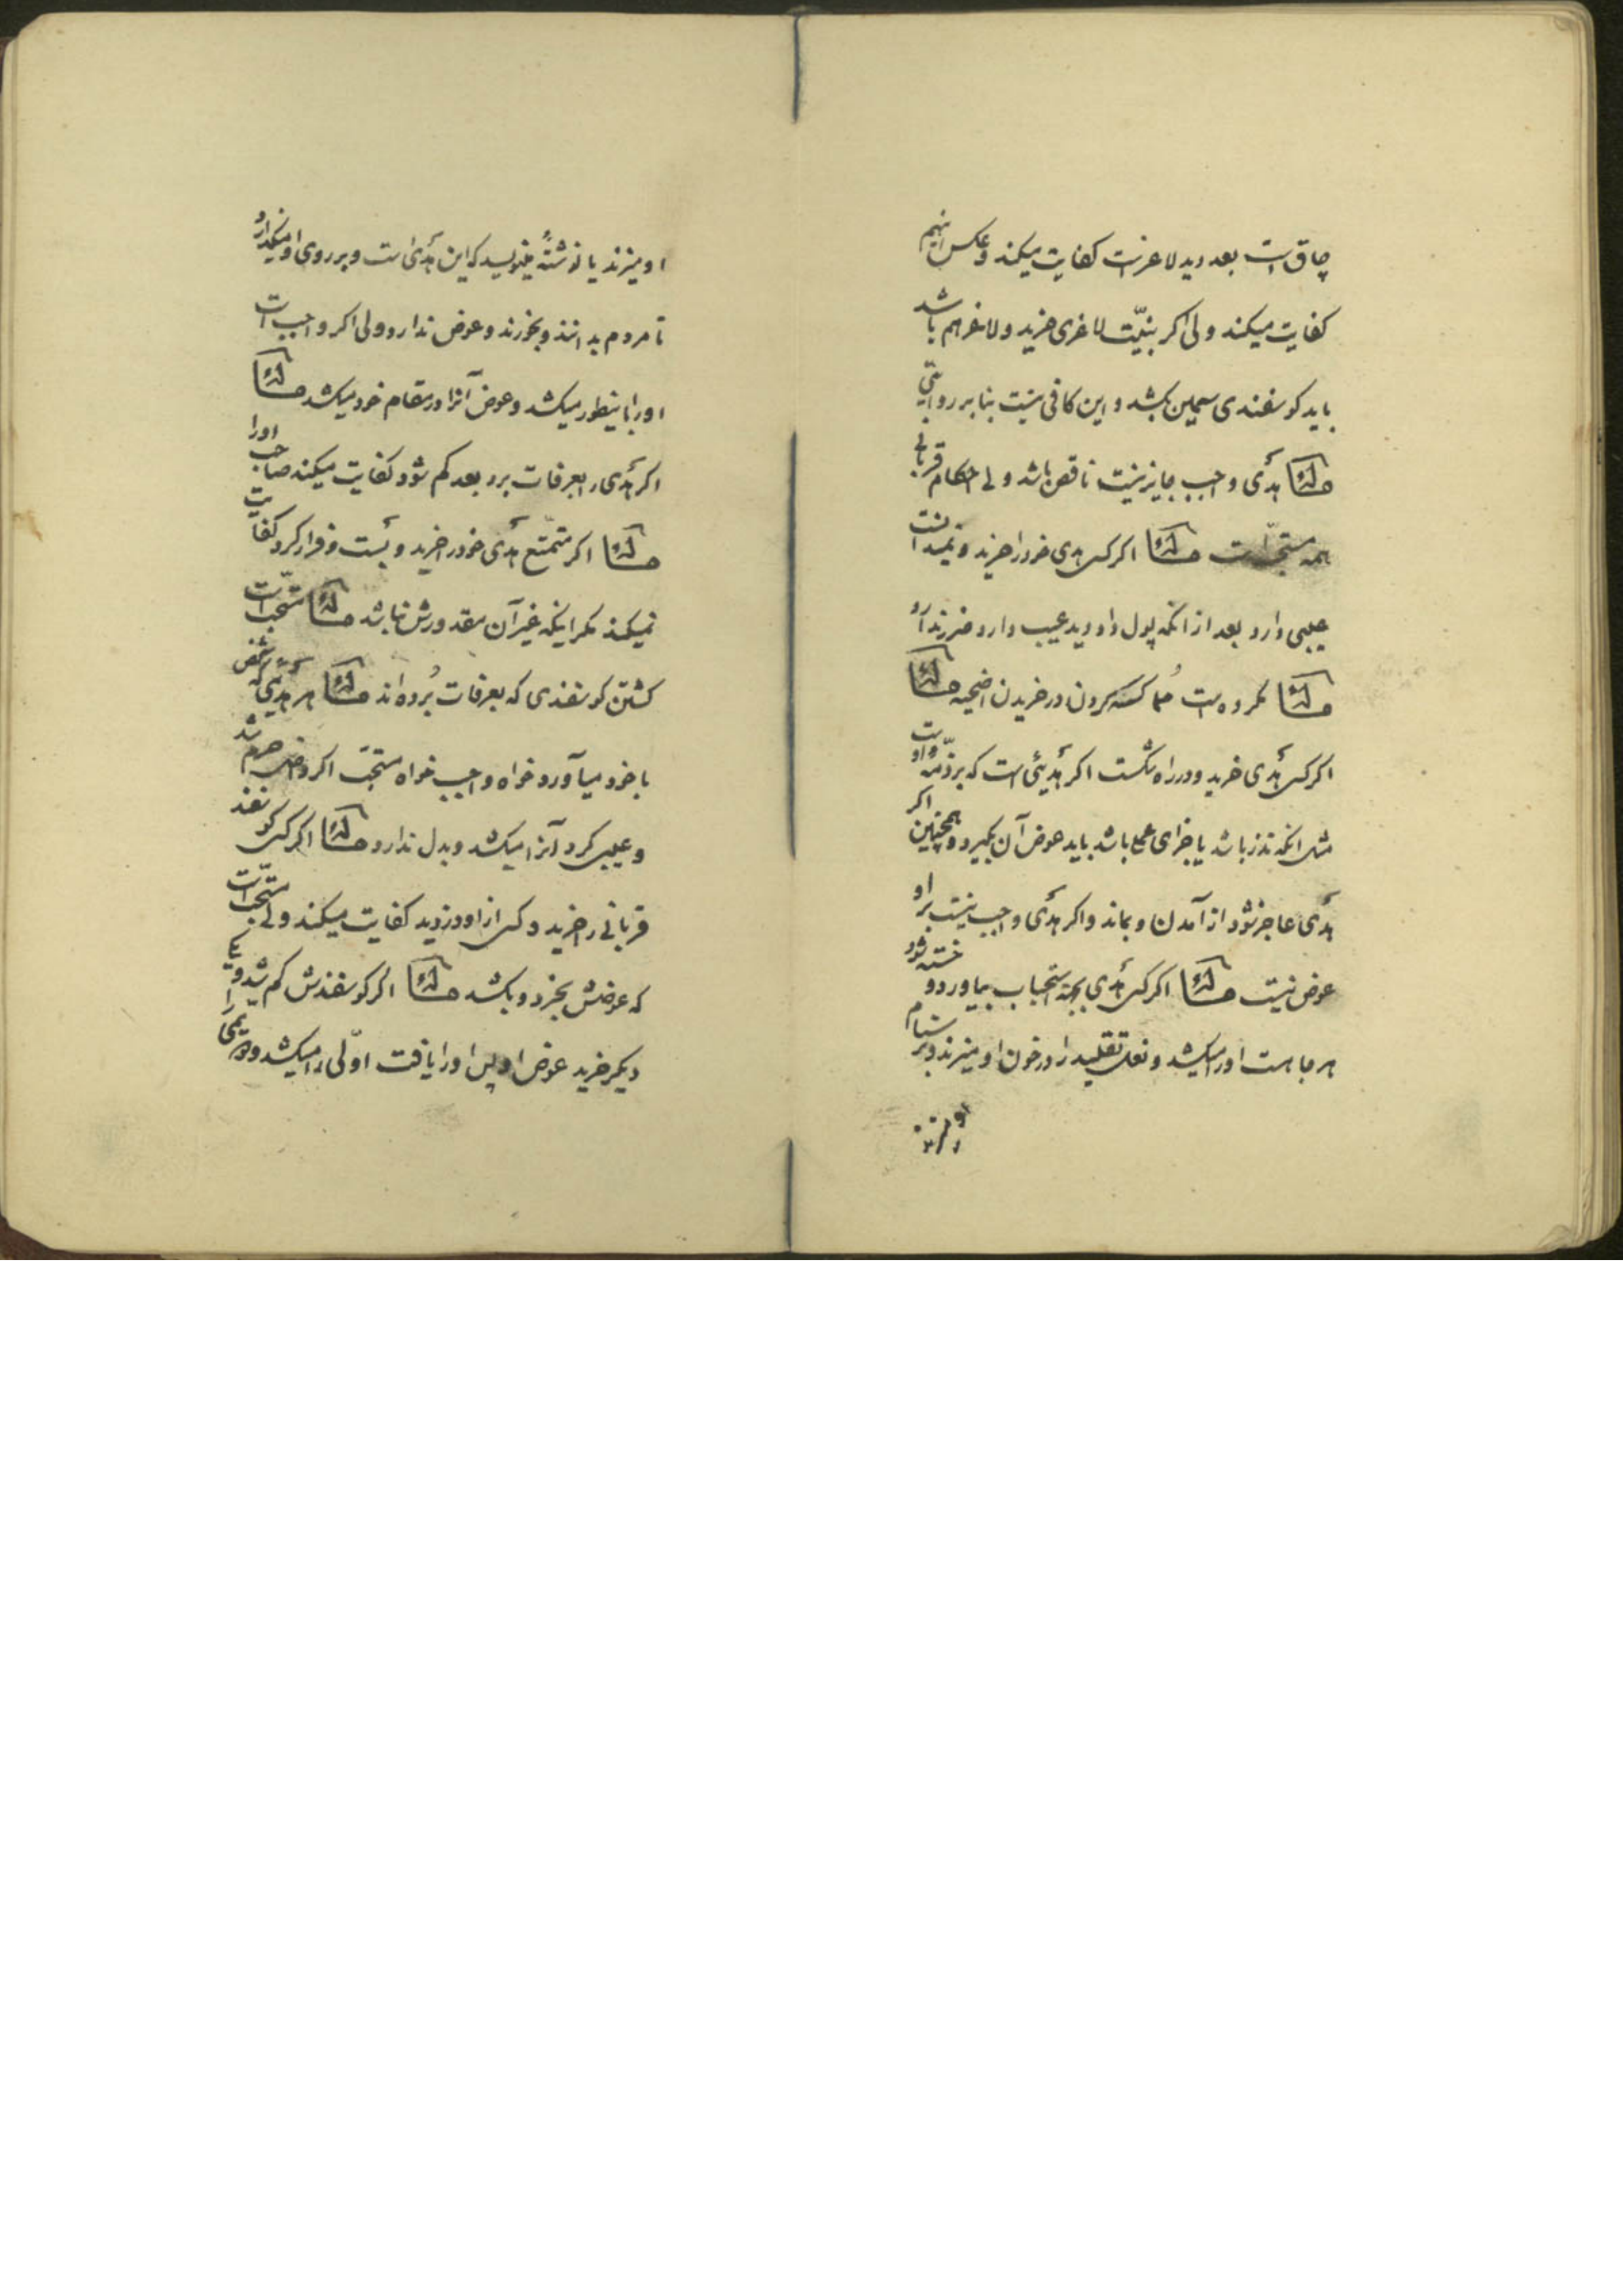 چاق است بعد دید لاغر است کفایت میکند و عکس اینهم
کفایت میکند ولی اکر بنیّت لاغری خرید و لاغر هم باشد
باید کوسفندی سمین بکشد و این کافی نیست بنا بر روایتی
مسئله هَدْی واجب جایز نیست ناقص باشد ولی احکام قربانی
همه مستحبّ است مسئله اکر کسی هدی خود را خرید و نمیدانست
عیبی دارد بعد از آنکه پول داد دید عیب دارد ضرر ندارد
مسئله مکروه است مُماکسه کردن در خریدن اضحیه مسئله
اکر کسی هَدْی خرید و در راه شکست اکر هَدْیئی است که بر ذمّه اوست
مثل انکه نذر باشد یا جزای عمل باشد باید عوض آن بکیرد و همچنین اکر
هَدْی عاجز شود از آمدن و بماند و اکر هَدْی واجب نیست بر او
عوض نیست مسئله اکر کسی هَدْی بجهة استحباب بیاورد و خسته شود
هر جا هست او را میکشد و نعل تقلید را در خون او میزند و بر سنام
او میزند
او میزند یا نوشتهٔ مینویسد که این هَدْی است و بر روی او میکذارد
تا مردم بدانند و بخورند و عوض ندارد ولی اکر واجب است
او را باینطور میکشد و عوض آنرا در مقام خود میکشد مسئله
اکر هَدْی را بعرفات برد بعد کم شود کفایت میکند صاحب او را
مسئله اکر متمتّع هَدْی خود را خرید و بست و فرار کرد کفایت
نمیکند مکر اینکه غیر آن مقدورش نباشد مسئله مستحبّ است
کشتن کوسفندی که بعرفات بُرده‌اند مسئله هر هَدْیی که شخص
با خود میآورد خواه واجب خواه مستحبّ اکر داخل حرم شد
و عیبی کرد آنرا میکشد و بدل ندارد مسئله اکر کسی کوسفند
قربانی را خرید و کسی از او دزدید کفایت میکند ولی مستحبّ است
که عوضش بخرد و بکشد مسئله اکر کوسفندش کم شد و یکی
دیکر خرید عوض او پس او را یافت اوّلی را میکشد و دویمی را